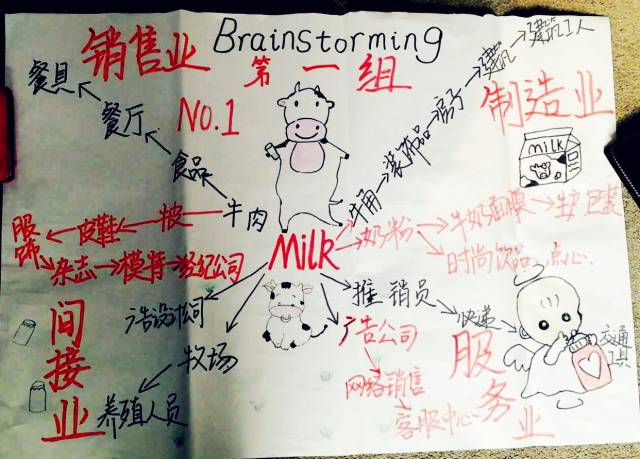 Brainstorming
销售业
第一组
NO.1
制造业
餐具
餐厅
食品
牛肉
牛角→装饰品→房子→建筑→建筑工人
milk
服饰←皮鞋←皮
杂志→模特→经纪公司
Milk
奶粉→牛奶面膜→生产包装
时尚饮品、点心
广告设计公司
牧场
养殖人员
间接业
推销员→快递→交通工具
广告公司
网络销售
客服中心
服务业